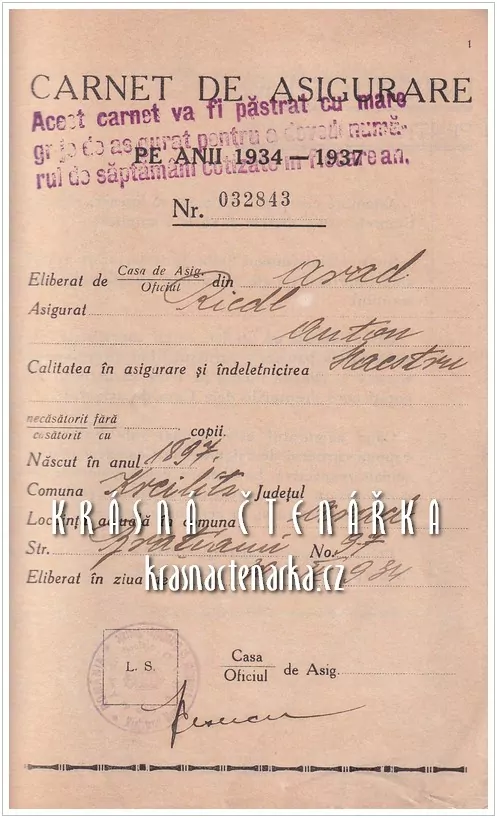 1
CARNET DE ASIGURARE
Acest carnet va fi păstrat cu mare
grije de asigurat pentru a dovedi numă-
rul de săptămâni cotizate în fiecare an.
PE ANII 1934—1937
Nr. 032843
Eliberat de Casa de Asig. din Arad.
Oficiul
Asigurat Riedl
Anton
Calitatea în asigurare și îndeletnicirea Maestru
necăsătorit fără copii.
căsătorit cu
Născut în anul 1897.
Comuna Județul
KRÁSNÁ ČTENÁŘKA
Locuința actuală în comuna Arad
Str. No. 97
krasnactenarka.cz
Eliberat în ziua 934
L. S.
Casa de Asig.
Oficiul